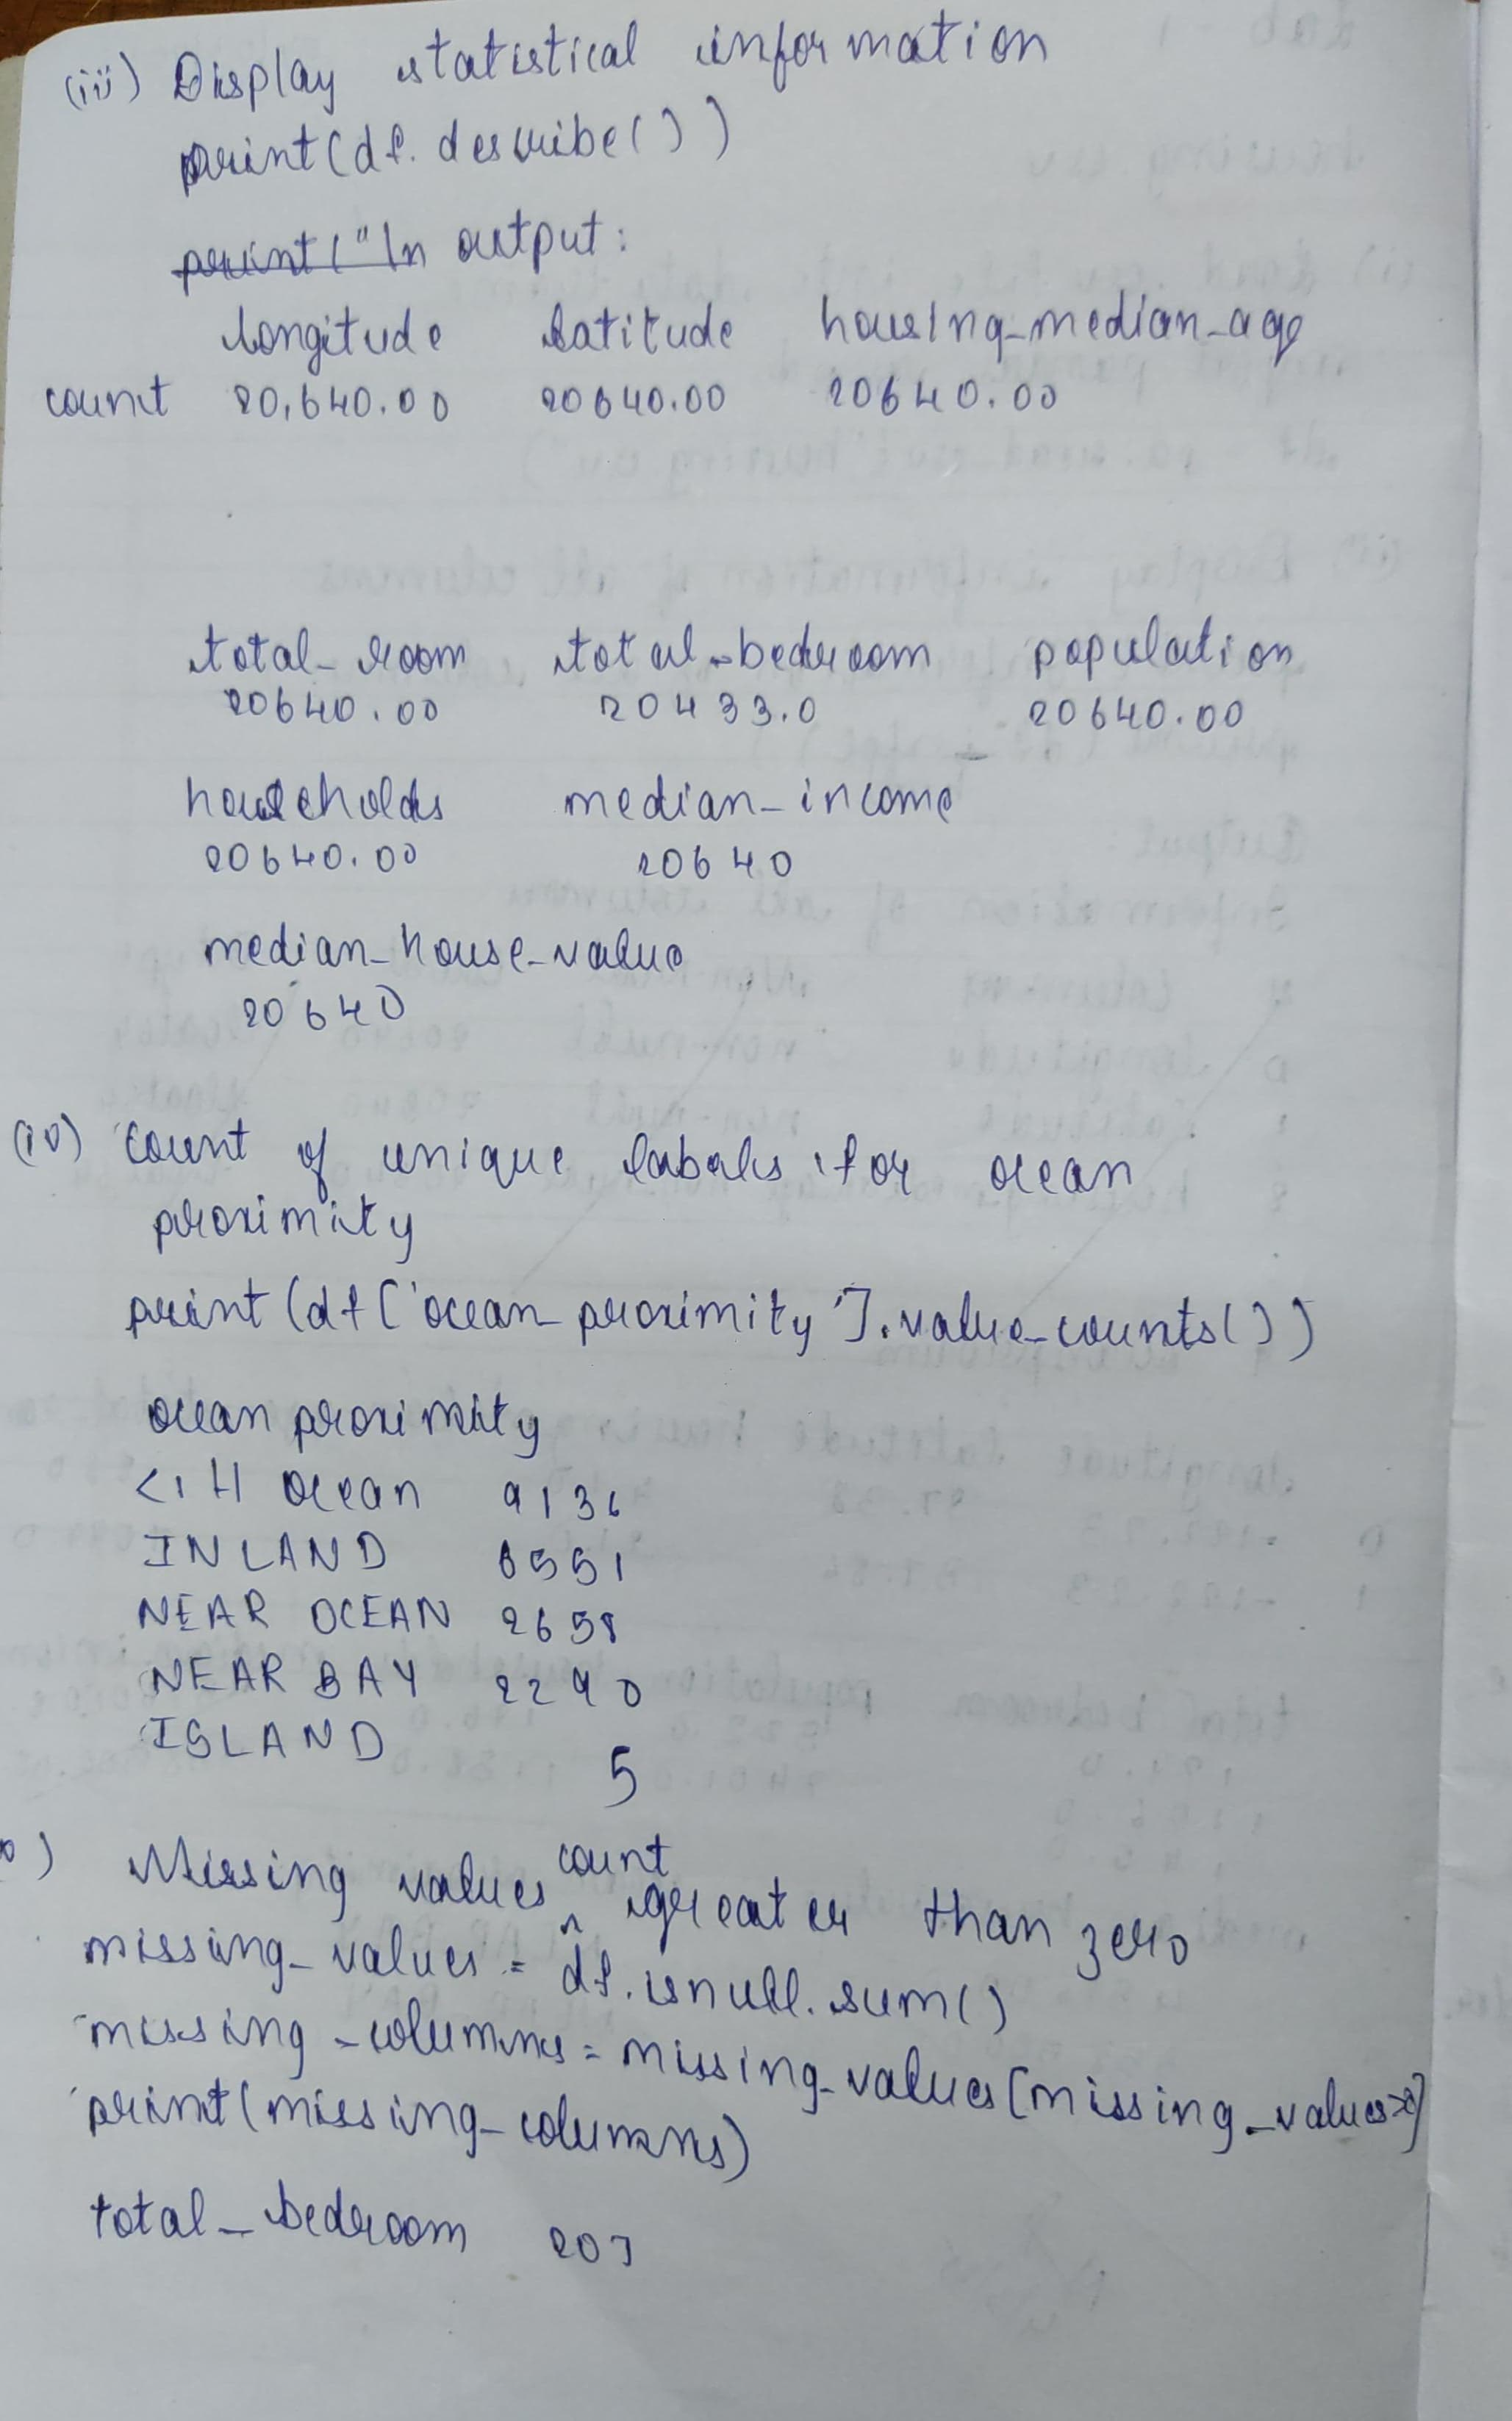 (iii) Display statistical information
print(df.describe())
print("\n output:
longitude latitude housing_median_age
count 20,640.00 20640.00 20640.00
total_room total_bedroom population
20640.00 20433.0 20640.00
households median_income
20640.00 20640
median_house_value
20640
(iv) count of unique labels for ocean
proximity
print(df['ocean_proximity'].value_counts())
ocean proximity
<1H ocean 9136
INLAND 6551
NEAR OCEAN 2658
NEAR BAY 2290
ISLAND 5
Missing values count greater than zero
missing_values = df.isnull.sum()
missing_columns = missing_values[missing_values>0]
print(missing_columns)
total_bedroom 207